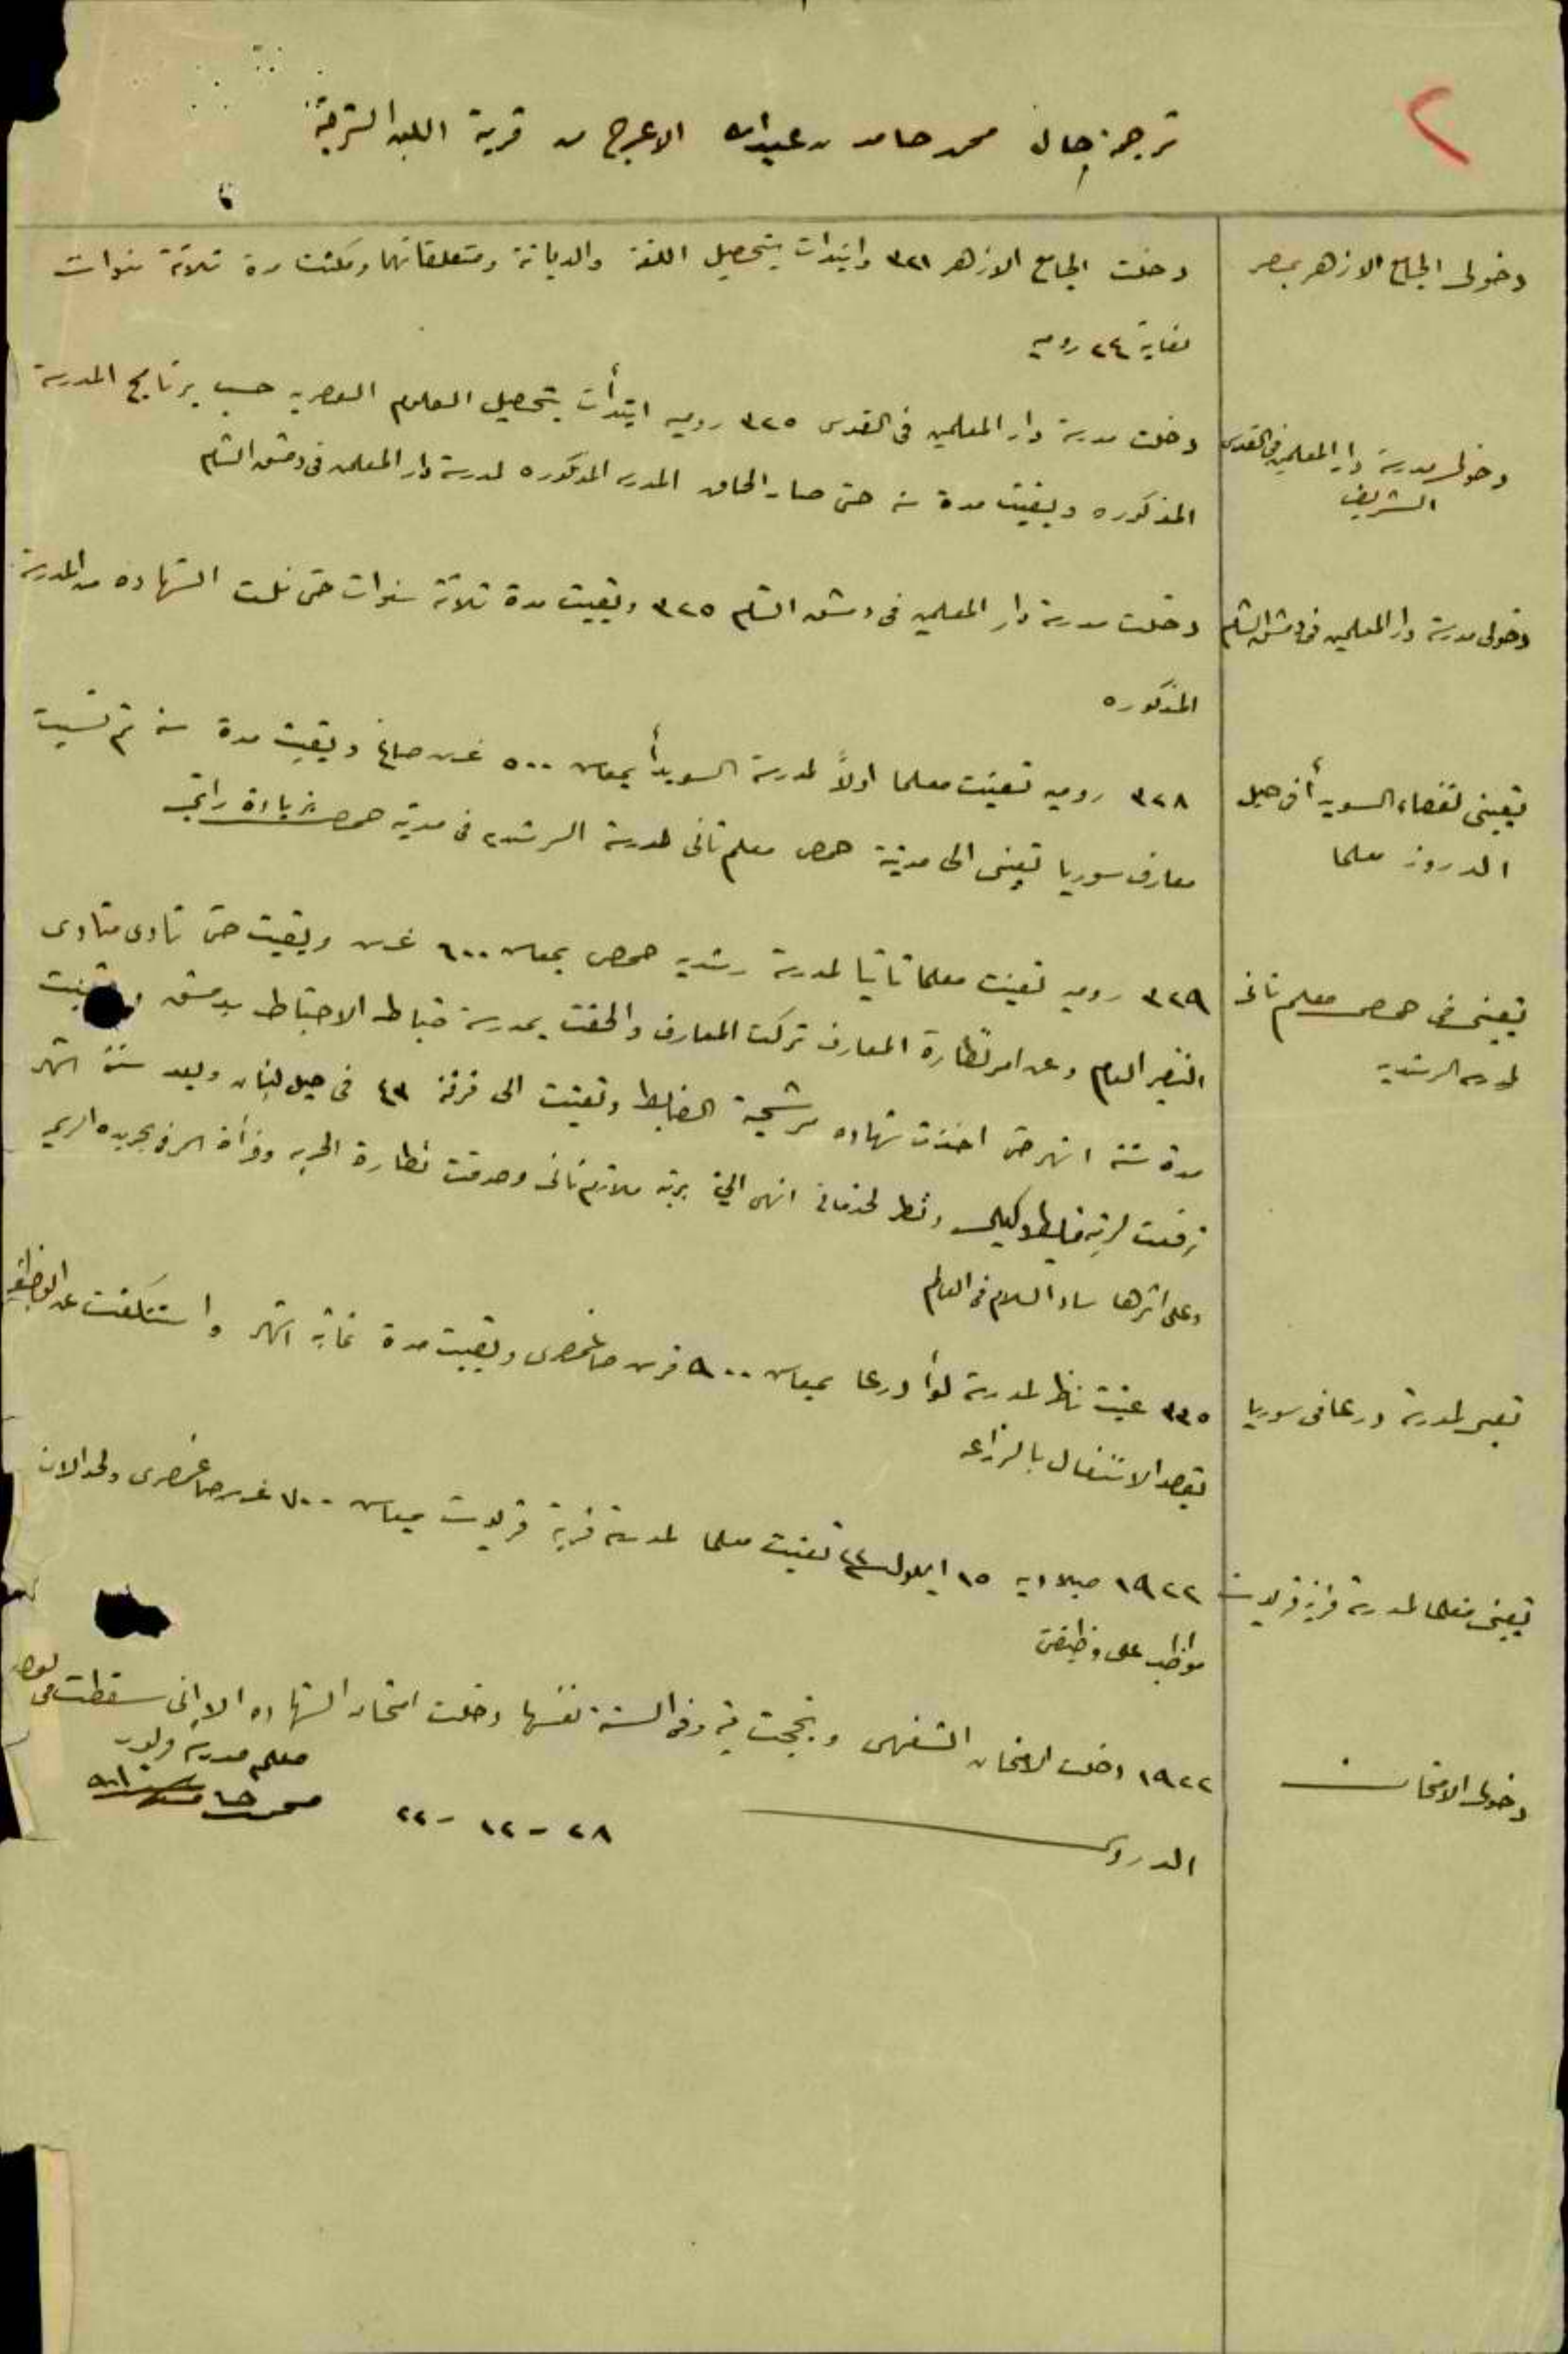 ٢
ترجمة حال محمد حامد عبدالله الاعرج من قرية اللبن الشرقية
دخولى الجامع الازهر بمصر
دخلت الجامع الازهر ٣٢١ وابتدأت بتحصيل اللغة والديانة ومتعلقاتهما ومكثت مدة ثلاثة سنوات
لغاية ٢٤ روميه
دخولى مدرسة دار المعلمين فى القدس
الشريف
دخلت مدرسة دار المعلمين فى القدس ٣٢٥ روميه ابتدأت بتحصيل العلوم العصريه حسب برنامج المدرسة
المذكوره وبقيت مدة سنه حتى صار الحاق المدرسه المذكوره لمدرسة دار المعلمين فى دمشق الشام
دخولى مدرسة دار المعلمين فى دمشق الشام
دخلت مدرسة دار المعلمين فى دمشق الشام ٣٢٥ وبقيت مدة ثلاثة سنوات حتى نلت الشهاده من المدرسة
المذكوره
تعيينى لقضاء السويدأ فى جبل
الدروز معلما
٣٢٨ روميه تعينت معلما اولاً لمدرسة السويدأ بمعاش ٥٠٠ غرش صاغ وبقيت مدة سنه ثم نسبت
معارف سوريا تعينى الى مدينة حمص معلم ثانى لمدرسة الرشديه فى مدينة حمص بزيادة راتبى
تعينى فى حمص معلم ثانى
لمدرسه الرشديه
٣٢٩ روميه تعينت معلما ثانيا لمدرسة رشديه حمص بمعاش ٦٠٠ غرش وبقيت حتى نادى منادى
النفير العام وعن امر نظارة المعارف تركت المعارف والحقت بمدرسة ضباط الاحتياط بدمشق وبقيت
مدة ستة اشهر حتى اخذت شهاده مرشحية الضابط وتعينت الى فرقة ٤٣ فى جبل لبنان وبعد ستة اشهر
ترفعت لرتبة ضابط وكيل ونظر لخدماتى انهى الي برتبة ملازم ثانى وصدقت نظارة الحربيه وقرأت امرى بجريدة الرسميه
وعلى اثرها ساد السلام فى العالم
تعينى لمدرسة درعا فى سوريا
٣٣٥ عينت ناظر لمدرسة لوأ درعا بمعاش ٩٠٠ غرش صاغ مصرى وبقيت مدة ثمانية اشهر واستنكفت عن الوظيفه
بقصد الاشتغال بالزراعه
تعينى معلما لمدرسة قرية قريوت
١٩٢٢ ميلاديه ١٥ ايلول سنة ٢٢ تعينت معلما لمدرسة قرية قريوت بمعاش ٧٠٠ غرش صاغ مصرى ولحد الان
مواظب على وظيفتى
دخولى الامتحان
١٩٢٢ دخلت الامتحان الشفهى ونجحت فيه وفى السنة نفسها دخلت امتحان الشهاده الا انى سقطت فى بعض
الدروس
معلم مدرسة قريوت
٢٨ - ١٢ - ٢٢
محمد حامد عبدالله